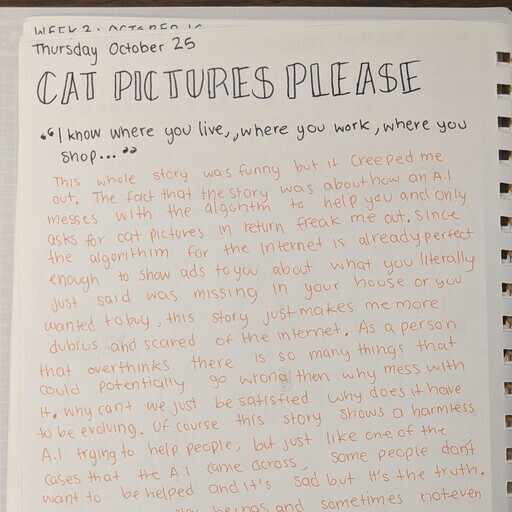 WEEK 2: OCTOBER
Thursday October 25
CAT PICTURES PLEASE
"I know where you live, where you work, where you
shop..."
This whole story was funny but it creeped me
out. The fact that the story was about how an A.I
messes with the algorithm to help you and only
asks for cat pictures in return freak me out. Since
the algorithim for the internet is already perfect
enough to show ads to you about what you literally
just said was missing in your house or you
wanted to buy, this story just makes me more
dubius and scared of the internet. As a person
that overthinks there is so many things that
could potentially go wrong then why mess with
it. why cant we just be satisfied why does it have
to be evolving. Of course this story shows a harmless
A.I trying to help people, but just like one of the
cases that the A.I came across, some people don't
want to be helped and it's sad but it's the truth.
beings and sometimes not even